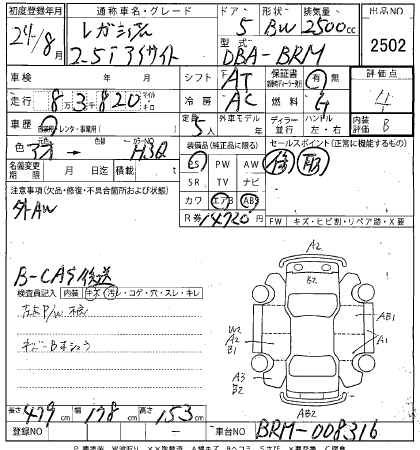 初度登録年月 通称車名・グレード ドア 形状 排気量 出品NO
24/8月 レガシィ 5 BW 2500cc
2.5i アイサイト 型式 DBA-BRM 2502
車検 年 月 シフト AT 保証書 有 無 評価点
走行 8万3千820 マイル キロ 冷房 AC 燃料 G 4
車歴 自家用・レンタ・事業用( ) 定員 5人 外車モデル 年 ディーラー 並行 ハンドル 左・右 内装 B
色 色替 カラーNO H3Q 装備品(純正品に限る) セールスポイント(正常に機能するもの)
名義変更期限 月 日迄 積載 SS PW AW
SR TV ナビ
注意事項(欠品・修復・不具合箇所および状態) カワ エアB ABS
外AW R券 14720 FW キズ・ヒビ割・リペア跡・X要
B-CAS後送
検査員記入 内装 キズ・汚レ・コゲ・穴・スレ・キレ
A2
B2
AB1
W2
A2
B1
A1
A3
B2
AB2
長さ 479cm 幅 178cm 高さ 153cm
登録NO 車台NO BRM-008316